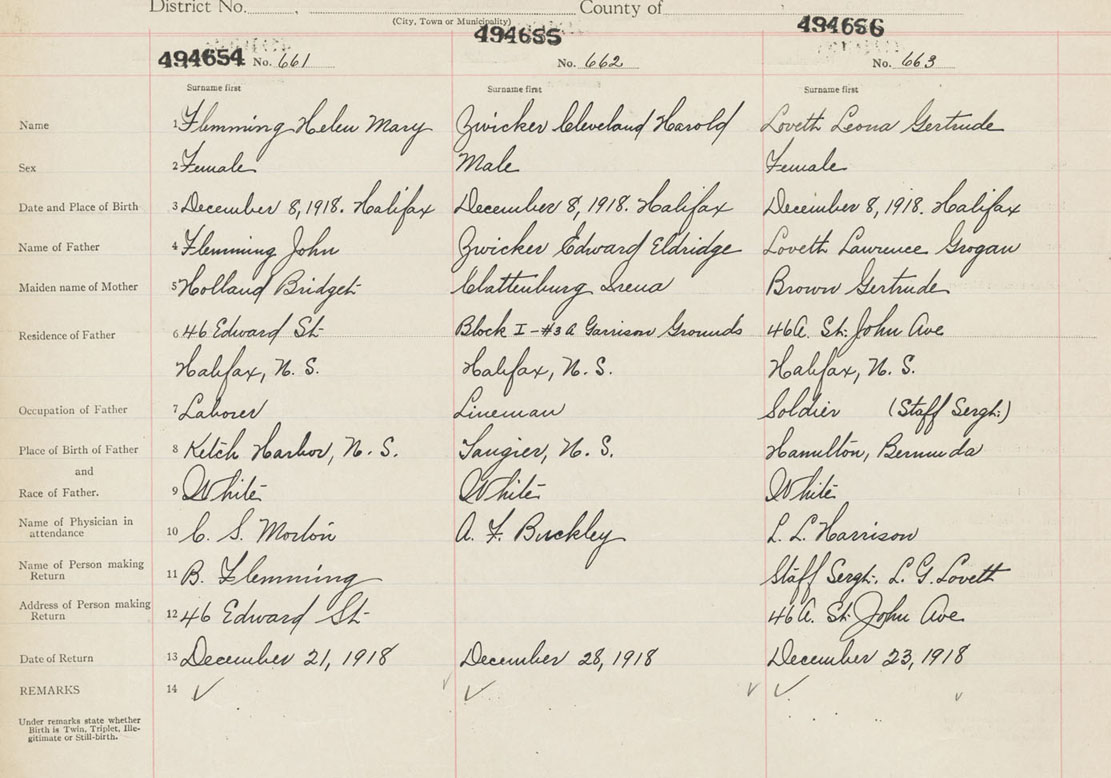 District No. County of
(City, Town or Municipality)
494654 No. 661 494655 No. 662 494656 No. 663
Surname first Surname first Surname first
Name 1 Flemming Helen Mary Zwicker Cleveland Harold Loveth Leona Gertrude
Sex 2 Female Male Female
Date and Place of Birth 3 December 8, 1918. Halifax December 8, 1918. Halifax December 8, 1918. Halifax
Name of Father 4 Flemming John Zwicker Edward Eldridge Loveth Lawrence Grogan
Maiden name of Mother 5 Holland Bridget Clattenburg Irena Brown Gertrude
Residence of Father 6 46 Edward St. Block I - #3 A Garrison Grounds 46A. St. John Ave
Halifax, N. S. Halifax, N. S. Halifax, N. S.
Occupation of Father 7 Laborer Lineman Soldier (Staff Sergt.)
Place of Birth of Father 8 Ketch Harbor, N. S. Tangier, N. S. Hamilton, Bermuda
and
Race of Father. 9 White White White
Name of Physician in
attendance 10 C. S. Morton A. F. Buckley L. L. Harrison
Name of Person making
Return 11 B. Flemming Staff Sergt. L. G. Loveth
Address of Person making
Return 12 46 Edward St. 46 A. St. John Ave
Date of Return 13 December 21, 1918 December 28, 1918 December 23, 1918
REMARKS 14 ✓ ✓ ✓
Under remarks state whether
Birth is Twin, Triplet, Ille-
gitimate or Still-birth.